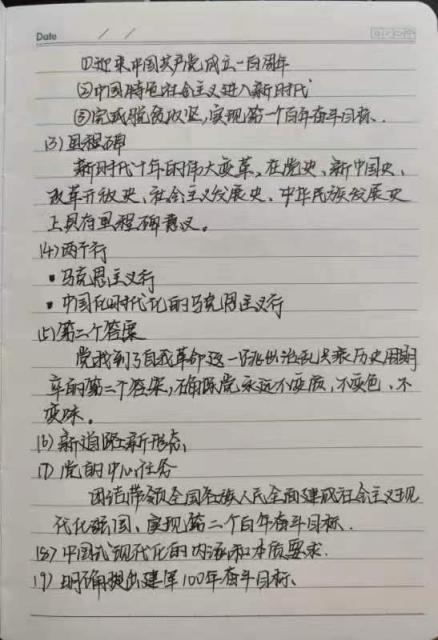 Date / /
①迎来中国共产党成立一百周年
②中国特色社会主义进入新时代
③完成脱贫攻坚,实现第一个百年奋斗目标.
(3)里程碑
新时代十年的伟大变革,在党史、新中国史、
改革开放史、社会主义发展史、中华民族发展史
上具有里程碑意义。
(4)两个行
▪马克思主义行
▪中国化时代化的马克思主义行
(5)第二个答案
党找到了自我革命这一跳出治乱兴衰历史周期
率的第二个答案,确保党永远不变质,不变色,不
变味。
(6)新道路新形态,
(7)党的中心任务
团结带领全国各族人民全面建成社会主义现
代化强国、实现第二个百年奋斗目标.
(8)中国式现代化的内涵和本质要求.
(9)明确提出建军100年奋斗目标、